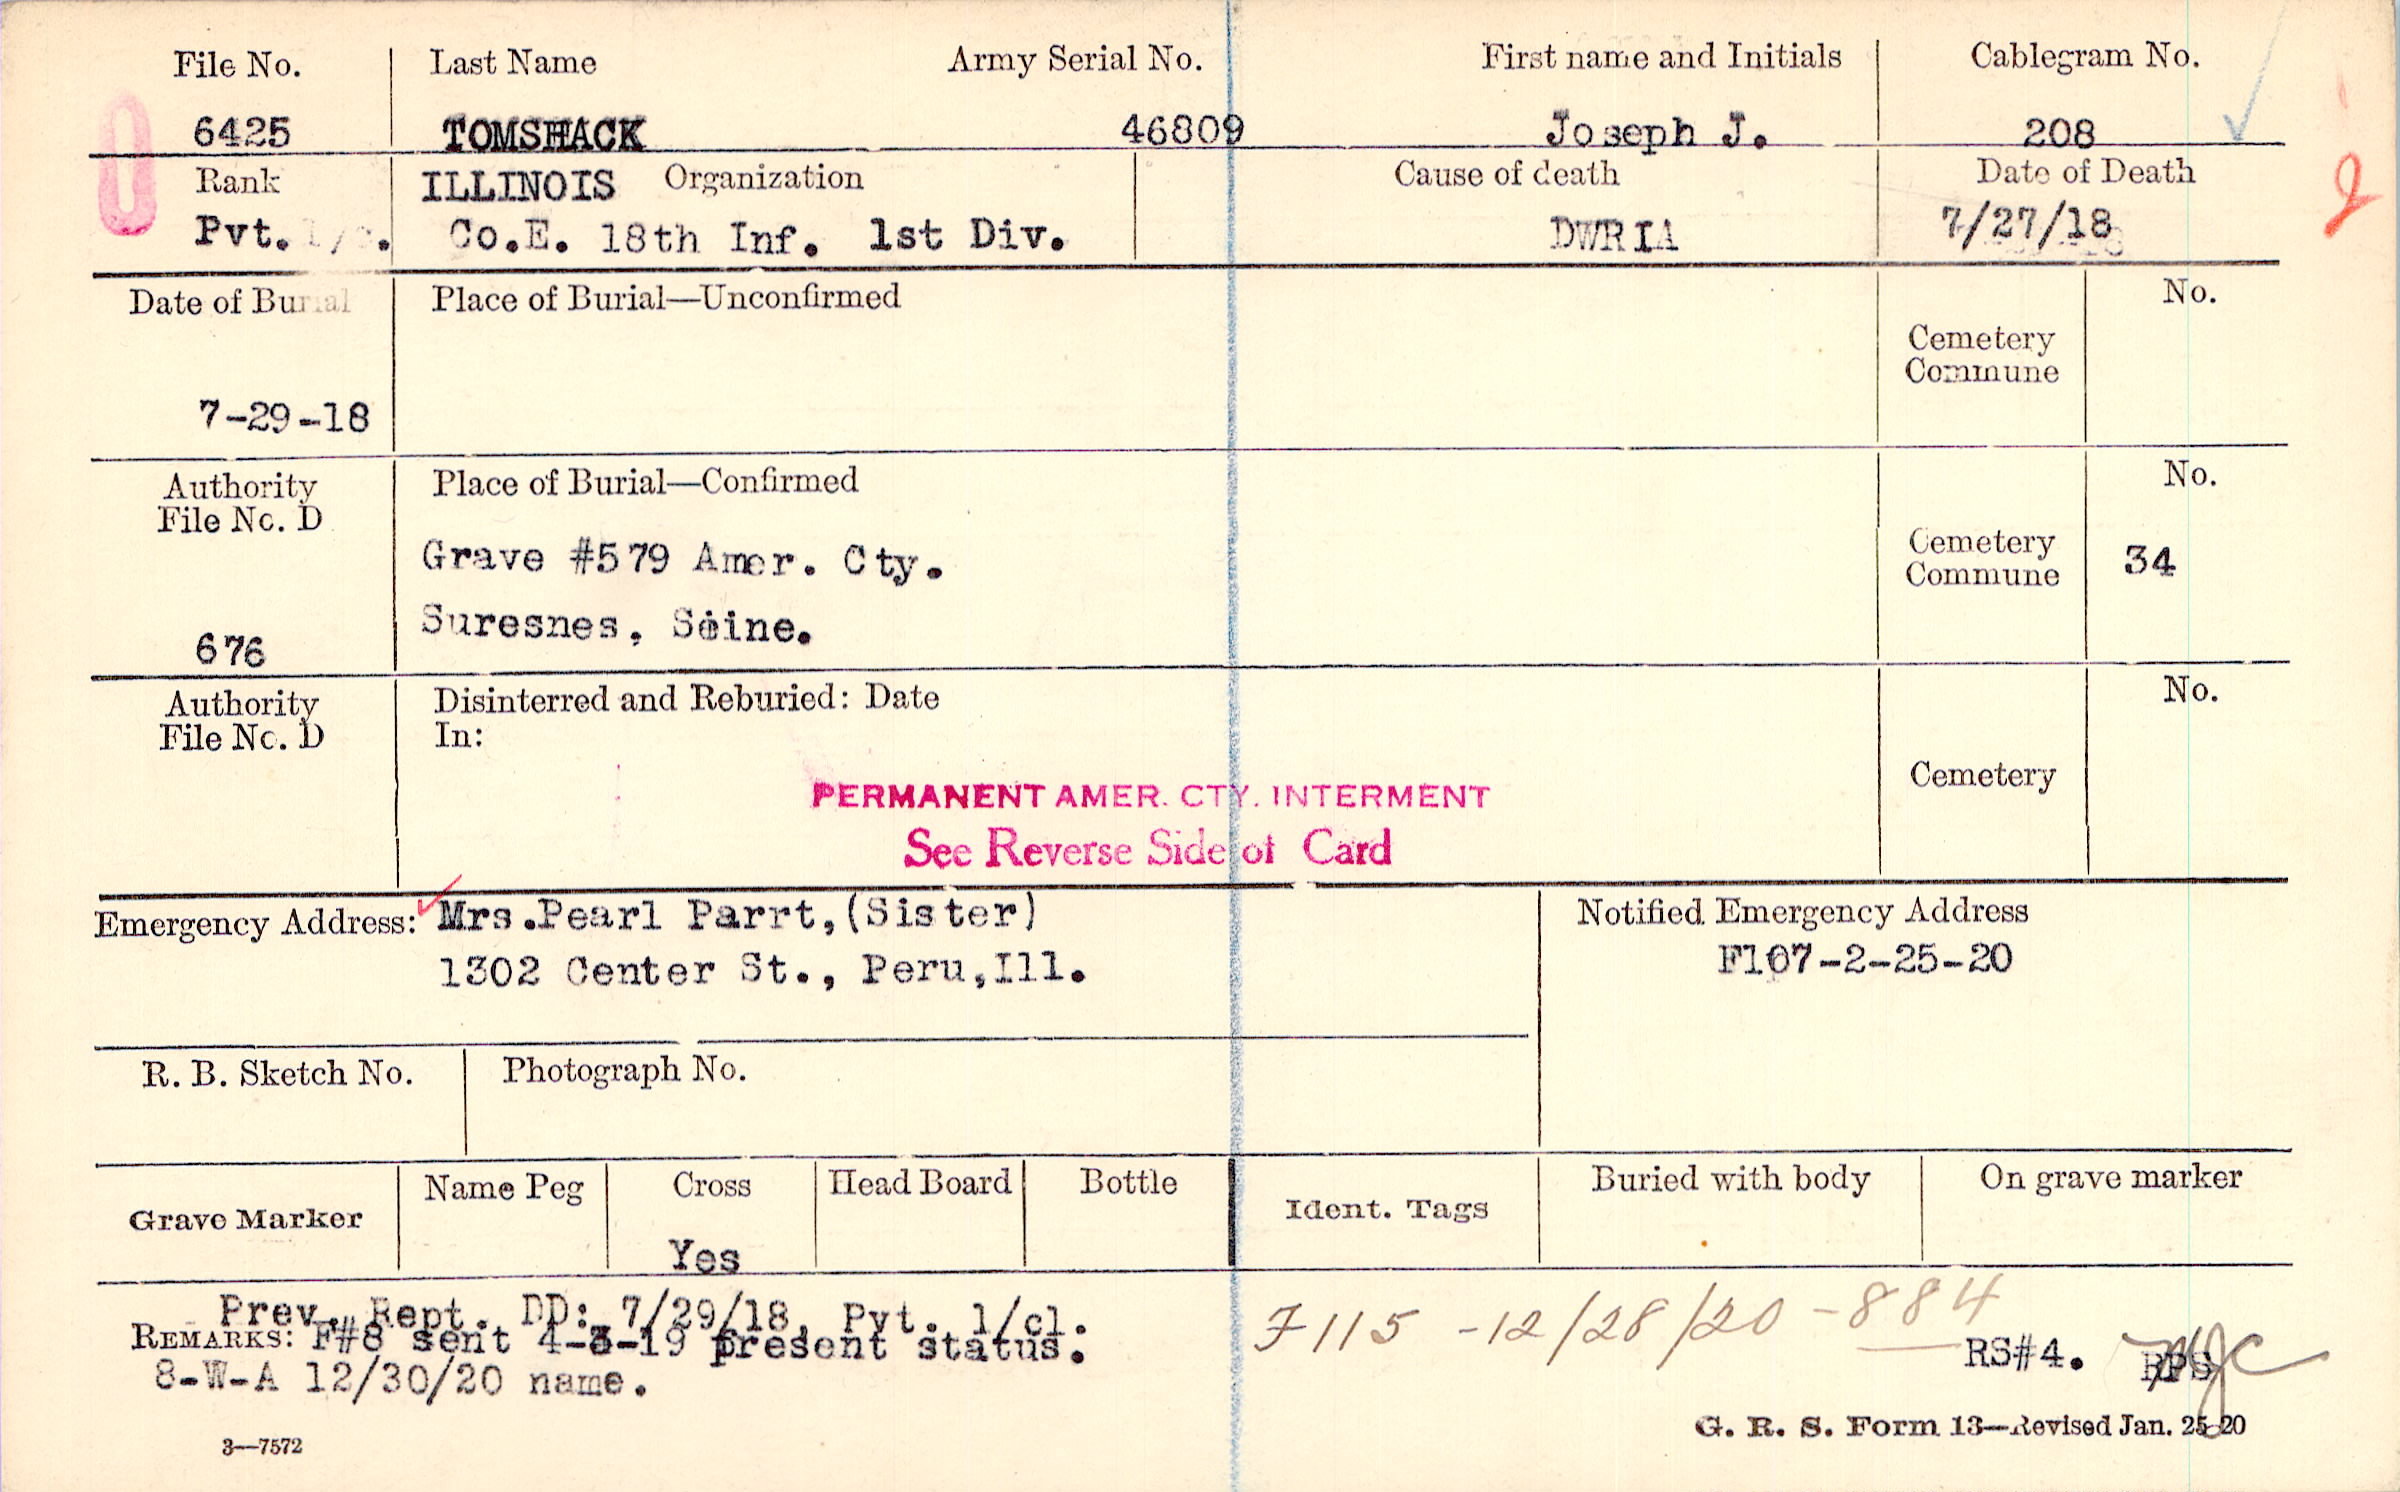 File No. Last Name Army Serial No. First name and Initials Cablegram No.
6425 TOMSHACK 46809 Joseph J. 208
Rank ILLINOIS Organization Cause of death Date of Death
Pvt. Co.E. 18th Inf. 1st Div. DWRIA 7/27/18
Date of Burial Place of Burial—Unconfirmed No.
Cemetery
Commune
7-29-18
Authority Place of Burial—Confirmed No.
File No. D
Grave #579 Amer. Cty. Cemetery
Commune 34
Suresnes, Seine.
676
Authority Disinterred and Reburied: Date No.
File No. D In:
Cemetery
PERMANENT AMER. CTY. INTERMENT
See Reverse Side of Card
Emergency Address: Mrs.Pearl Parrt,(Sister) Notified Emergency Address
1302 Center St., Peru,Ill. F107-2-25-20
R. B. Sketch No. Photograph No.
Grave Marker Name Peg Cross Head Board Bottle Ident. Tags Buried with body On grave marker
Yes
Prev. Rept. DD: 7/29/18, Pvt. 1/cl. F115 -12/28/20 -884
REMARKS: F#8 sent 4-3-19 present status. RS#4.
8-W-A 12/30/20 name.
3—7572 G. R. S. Form 13—Revised Jan. 25-20